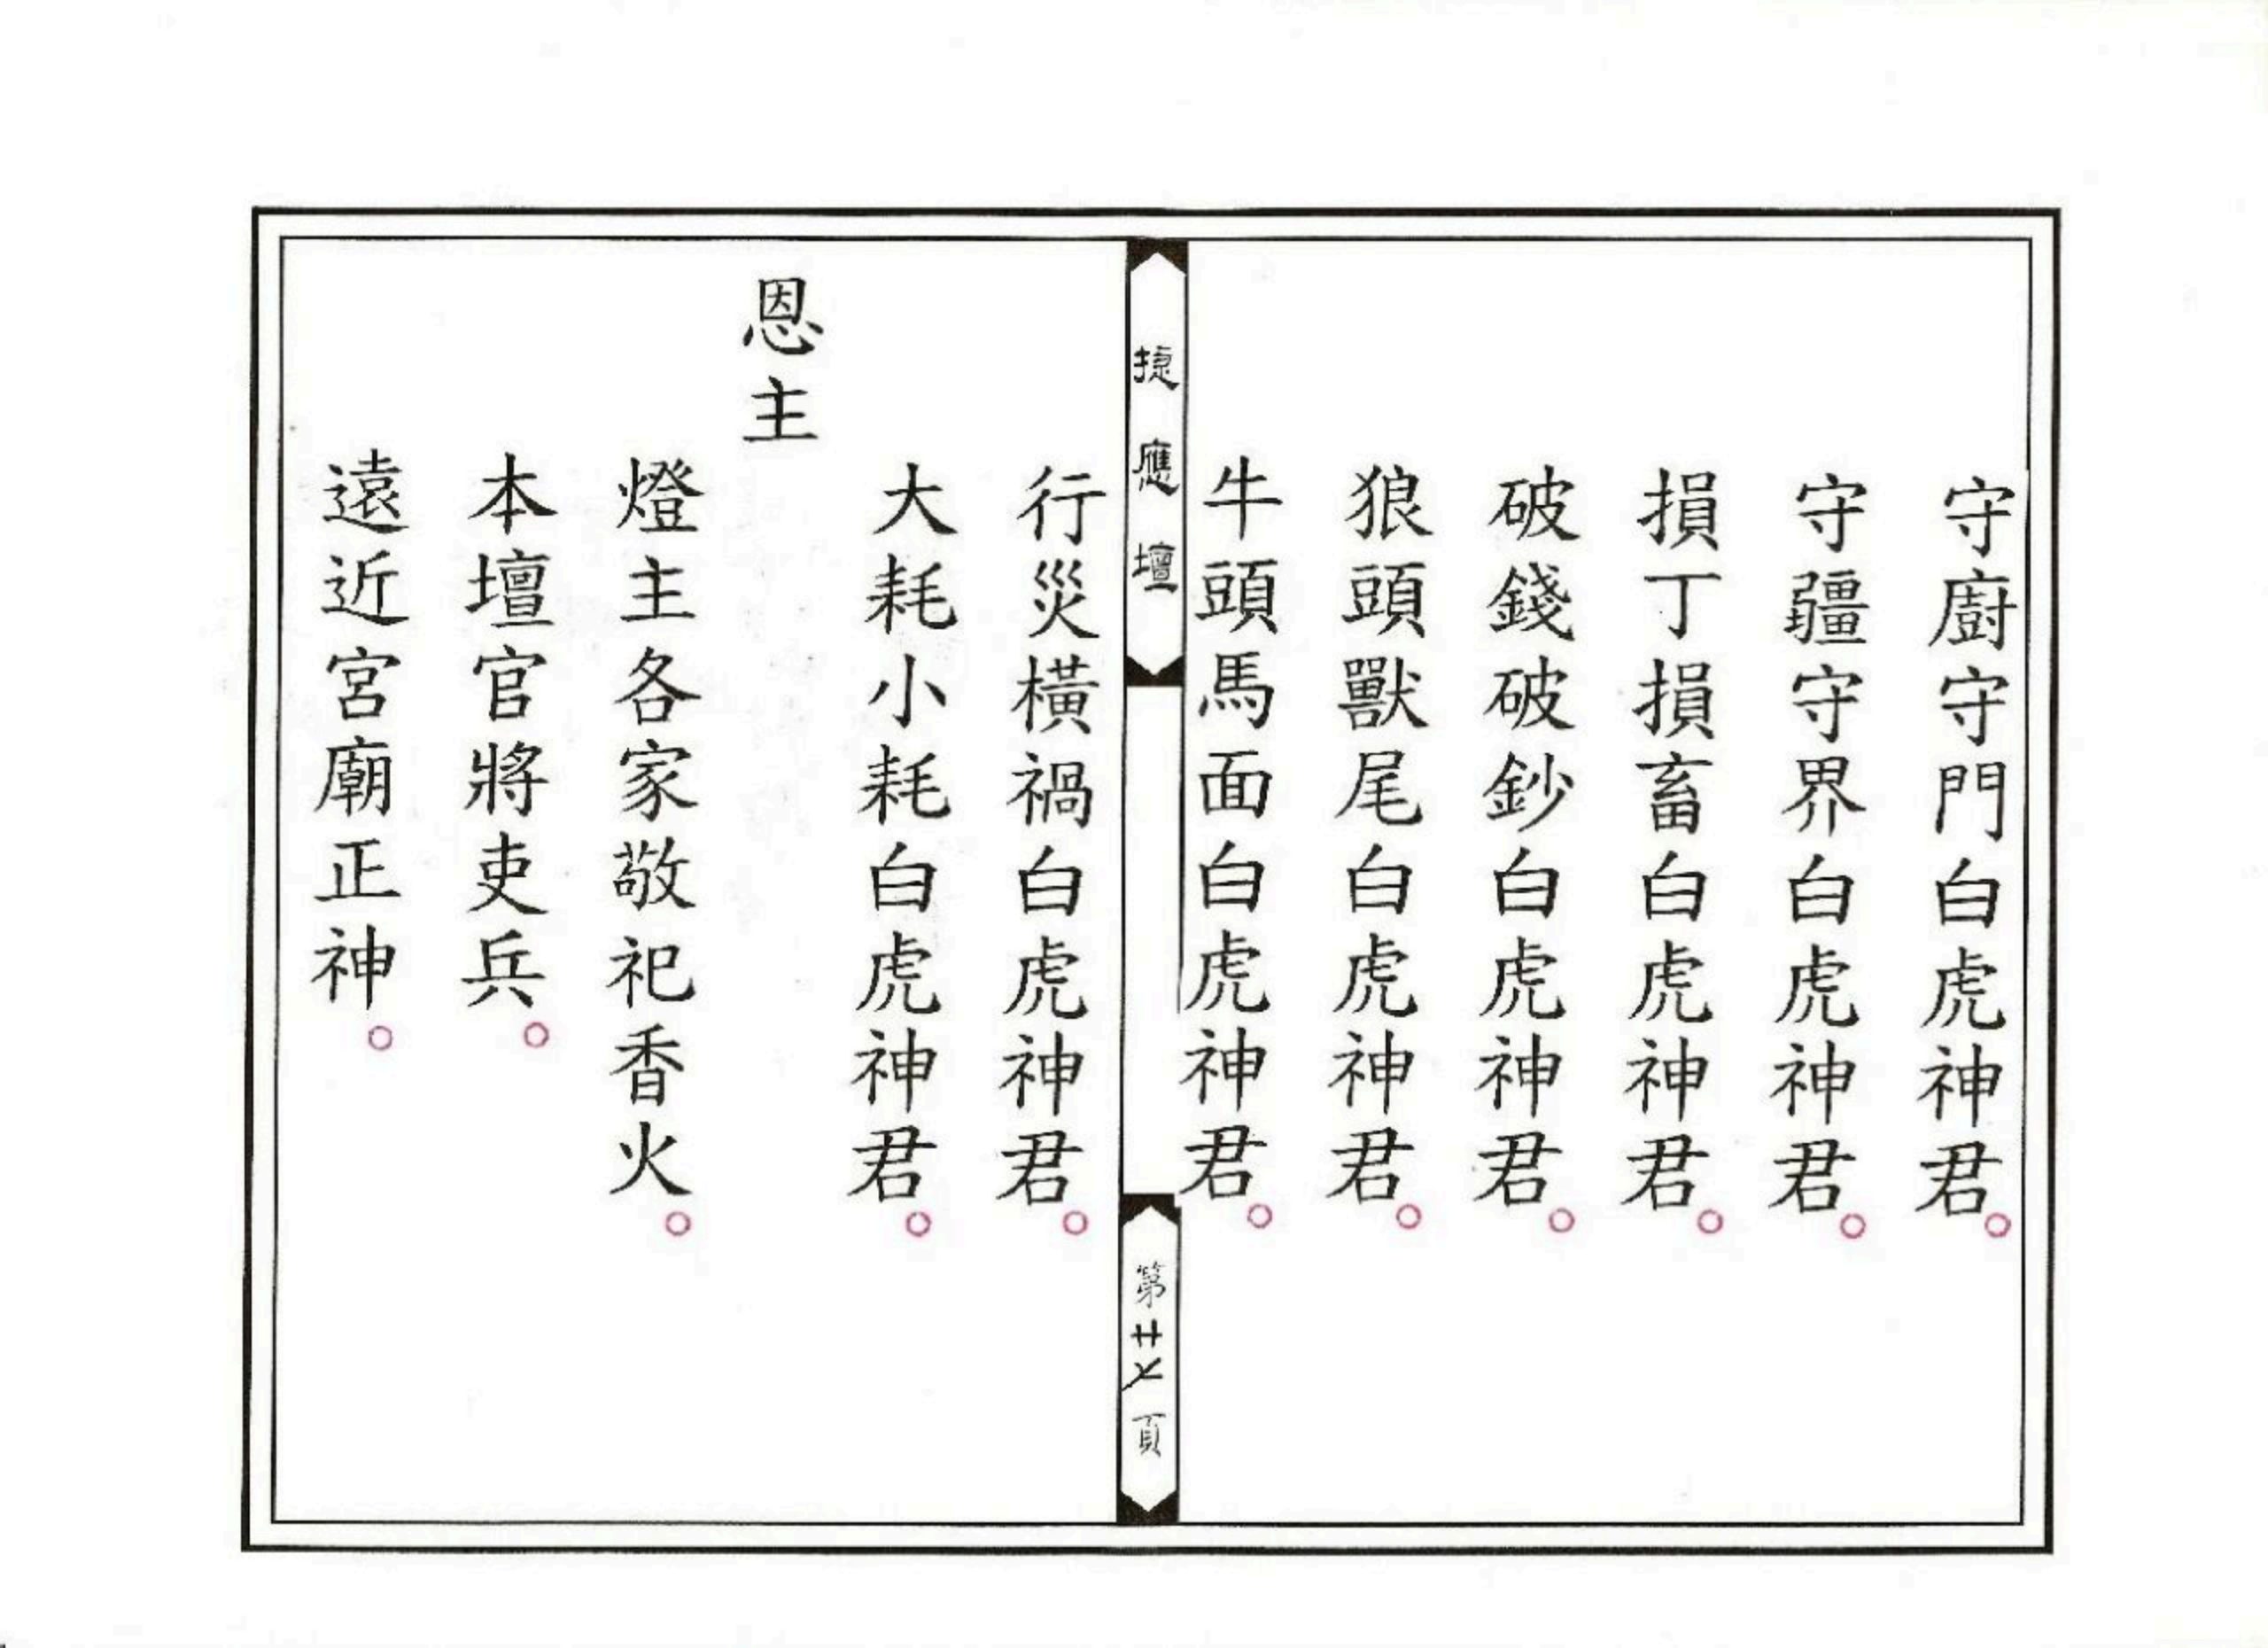 守廚守門白虎神君。
守疆守界白虎神君。
損丁損畜白虎神君。
破錢破鈔白虎神君。
狼頭獸尾白虎神君。
牛頭馬面白虎神君。
捷應壇
第廿七頁
行災橫禍白虎神君。
大耗小耗白虎神君。
恩主
燈主各家敬祀香火。
本壇官將吏兵。
遠近宮廟正神。